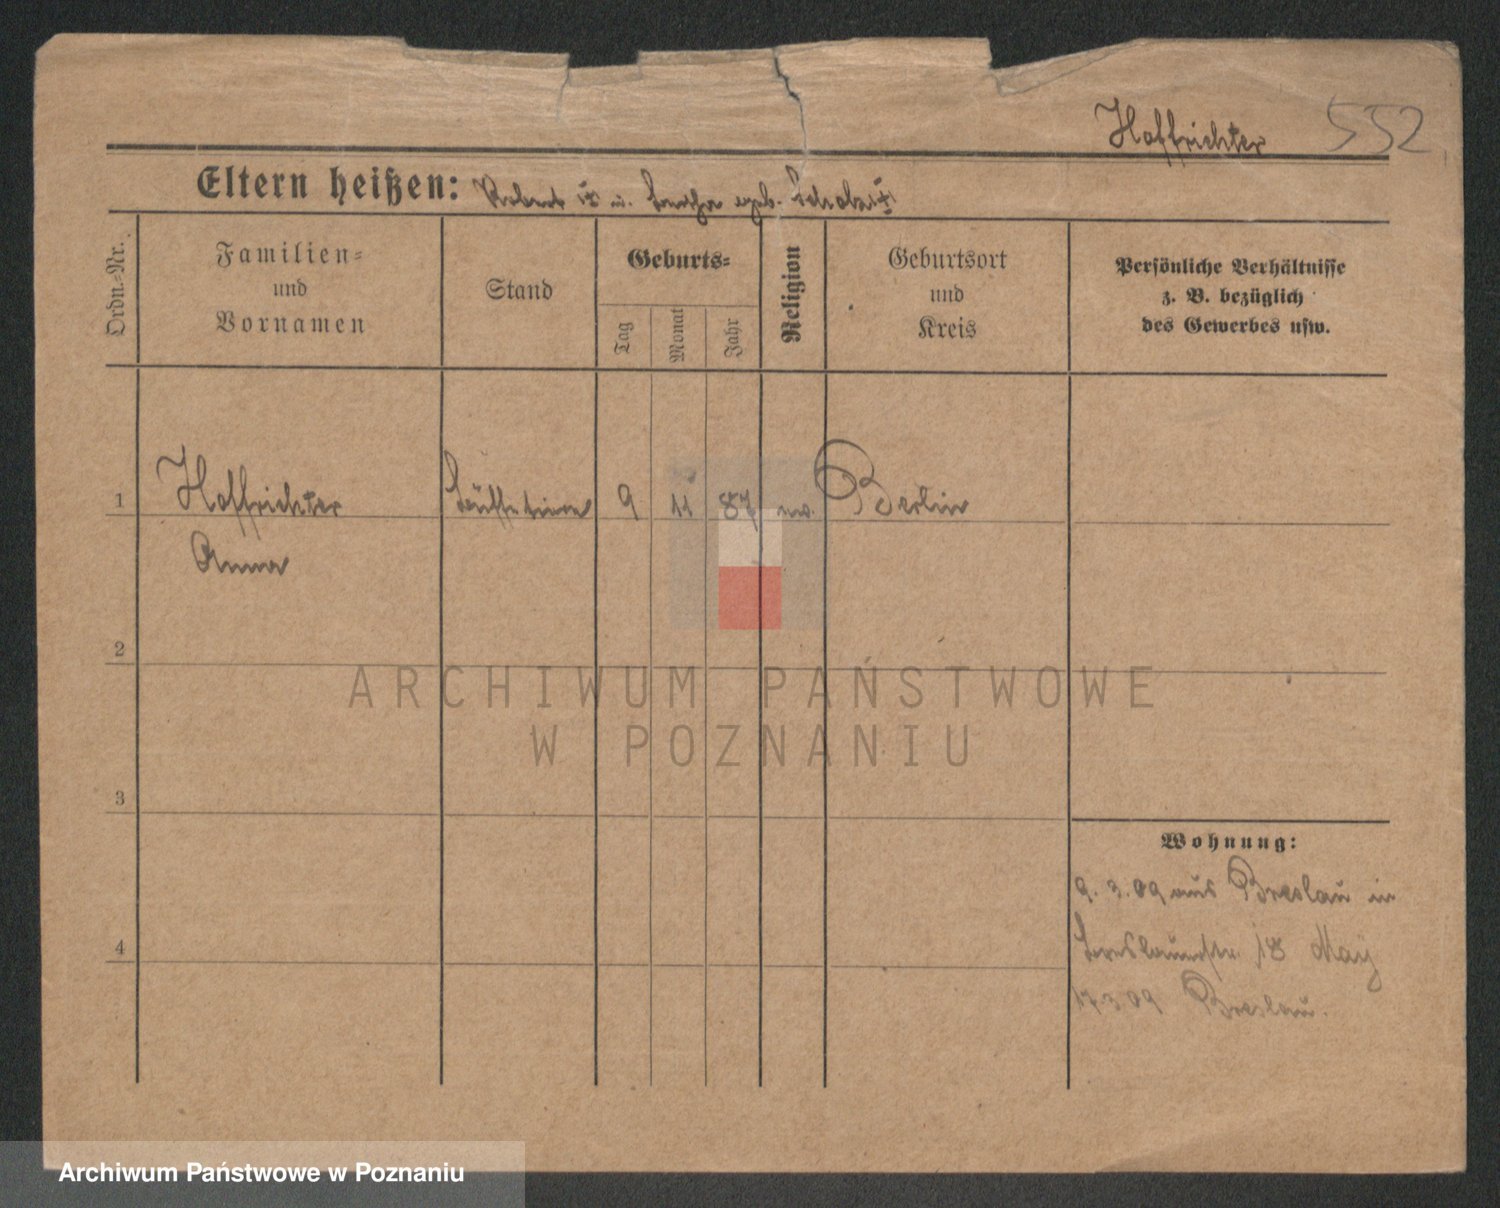 Hoffrichter 552
Eltern heißen: Robert † u. Bertha geb.
Ordn.-Nr.
Familien-
und
Vornamen
Stand
Geburts-
Tag
Monat
Jahr
Religion
Geburtsort
und
Kreis
Persönliche Verhältnisse
z. B. bezüglich
des Gewerbes usw.
1 Hoffrichter 9 11 87 ev. Berlin
Anna
2
ARCHIWUM PAŃSTWOWE
W POZNANIU
3
Wohnung:
9.3.09 aus Breslau in
Breslauerstr. 18 May
4
17.3.09 Breslau.
Archiwum Państwowe w Poznaniu